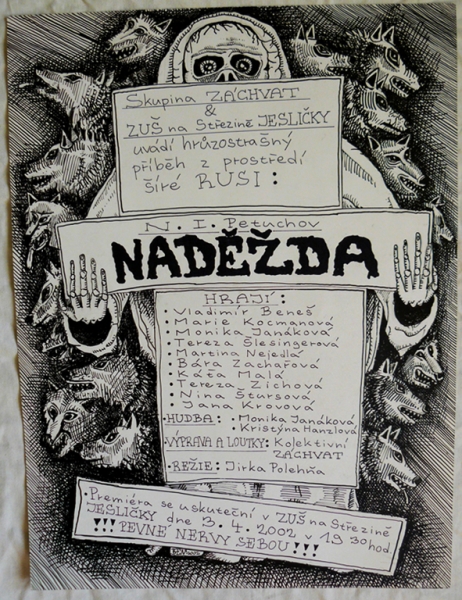 Skupina ZÁCHVAT
&
ZUŠ na Střezině JESLIČKY
uvádí hrůzostrašný
příběh z prostředí
šíré RUSI:
N. I. Petuchov
NADĚŽDA
HRAJÍ:
• Vladimír Beneš
• Marie Kocmanová
• Monika Janáková
• Tereza Šlesingerová
• Martina Nejedlá
• Bára Zachařová
• Káťa Malá
• Tereza Zichová
• Nina Štursová
• Jana Krovová
• HUDBA: • Monika Janáková
• Kristýna Hanzlová
• VÝPRAVA A LOUTKY: Kolektivní
ZÁCHVAT
• REŽIE: Jirka Polehňa
• Premiéra se uskuteční v ZUŠ na Střezině
JESLIČKY dne 3. 4. 2002 v 19 30 hod.
!!! PEVNÉ NERVY SEBOU !!!